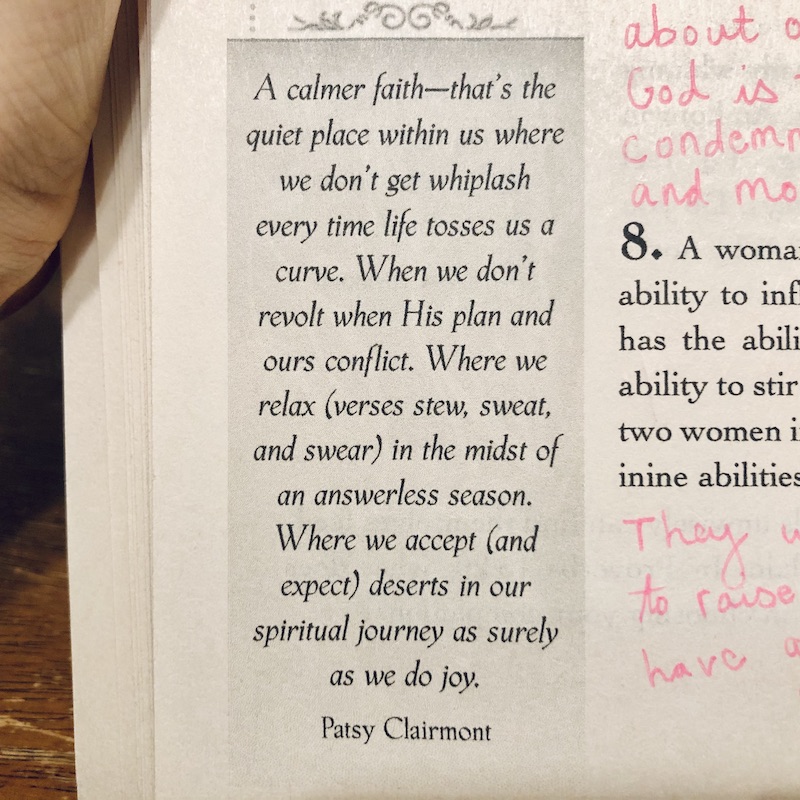 A calmer faith—that's the
quiet place within us where
we don't get whiplash
every time life tosses us a
curve. When we don't
revolt when His plan and
ours conflict. Where we
relax (verses stew, sweat,
and swear) in the midst of
an answerless season.
Where we accept (and
expect) deserts in our
spiritual journey as surely
as we do joy.
Patsy Clairmont
about
God is
and
8. A
ability to
has the
ability to stir
two women
inine abilities
They
to raise
have